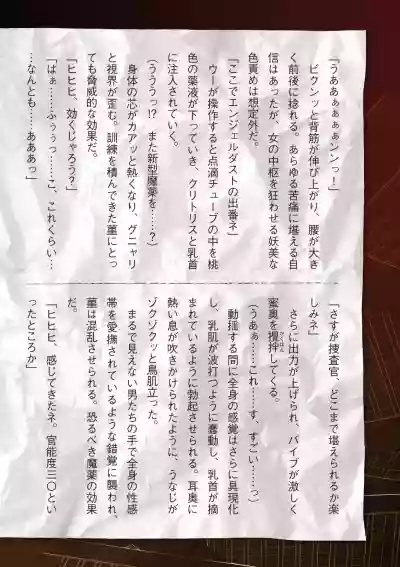 「うああぁぁぁぁンンっー！」
　ビクンッと背筋が伸び上がり、腰が大き
く前後に捻れる。あらゆる苦痛に堪える自
信はあったが、女の中枢を狂わせる妖美な
色責めは想定外だ。
「ここでエンジェルダストの出番ネ」
　ウーが操作すると点滴チューブの中を桃
色の薬液が下っていき、クリトリスと乳首
に注入されていく。
（うううっ!?　また新型魔薬を……？）
　身体の芯がカアッと熱くなり、グニャリ
と視界が歪む。訓練を積んできた菫にとっ
ても脅威的な効果だ。
「ヒヒヒ、効くじゃろう？」
「はぁ……ふぅぅっ……こ、これくらい…
…なんとも……あああっ」
「さすが捜査官、どこまで堪えられるか楽
しみネ」
　さらに出力が上げられ、バイブが激しく
蜜奥を攪拌してくる。
（うあぁ……これ……す、すごい……っ）
　動揺する間に全身の感覚はさらに具現化
し、乳肌が波打つように蠢動し、乳首が摘
まれているように勃起させられる。耳奥に
熱い息が吹きかけられたように、うなじが
ゾクゾクッと鳥肌立った。
　まるで見えない男たちの手で全身の性感
帯を愛撫されているような錯覚に襲われ、
菫は混乱させられる。恐るべき魔薬の効果
だ。
「ヒヒヒ、感じてきたネ。官能度三〇とい
ったところか」